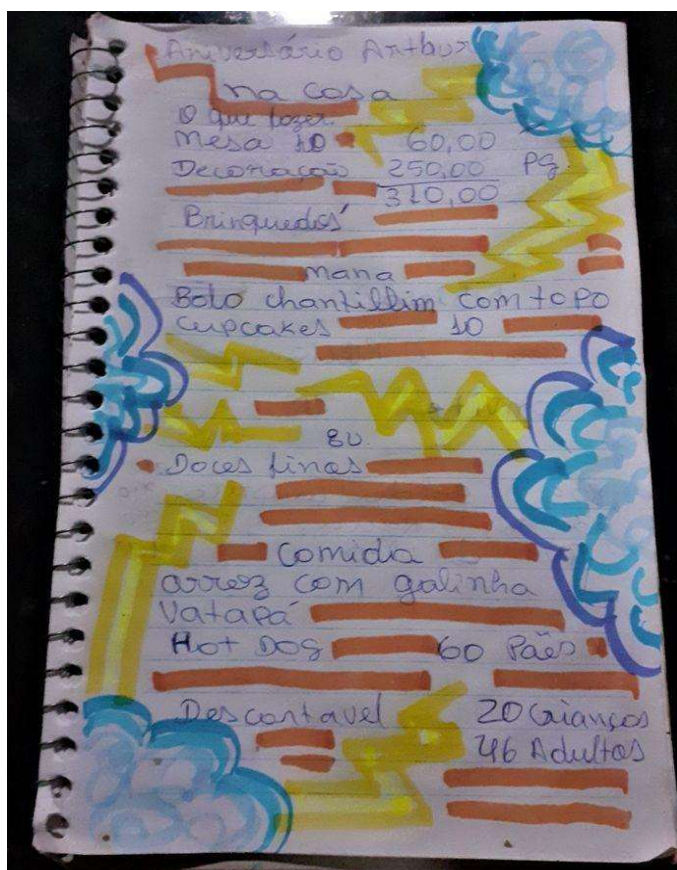 Aniversário Arthur
na casa
O que fazer.
Mesa 10 60,00
Decoração 250,00 Pg
310,00
Brinquedos
mana
Bolo chantillim com topo
Cupcakes 10
80
Doces finos
Comida
arroz com galinha
Vatapá
Hot Dog 60 Pães
Descartavel 20 Crianços
46 Adultos